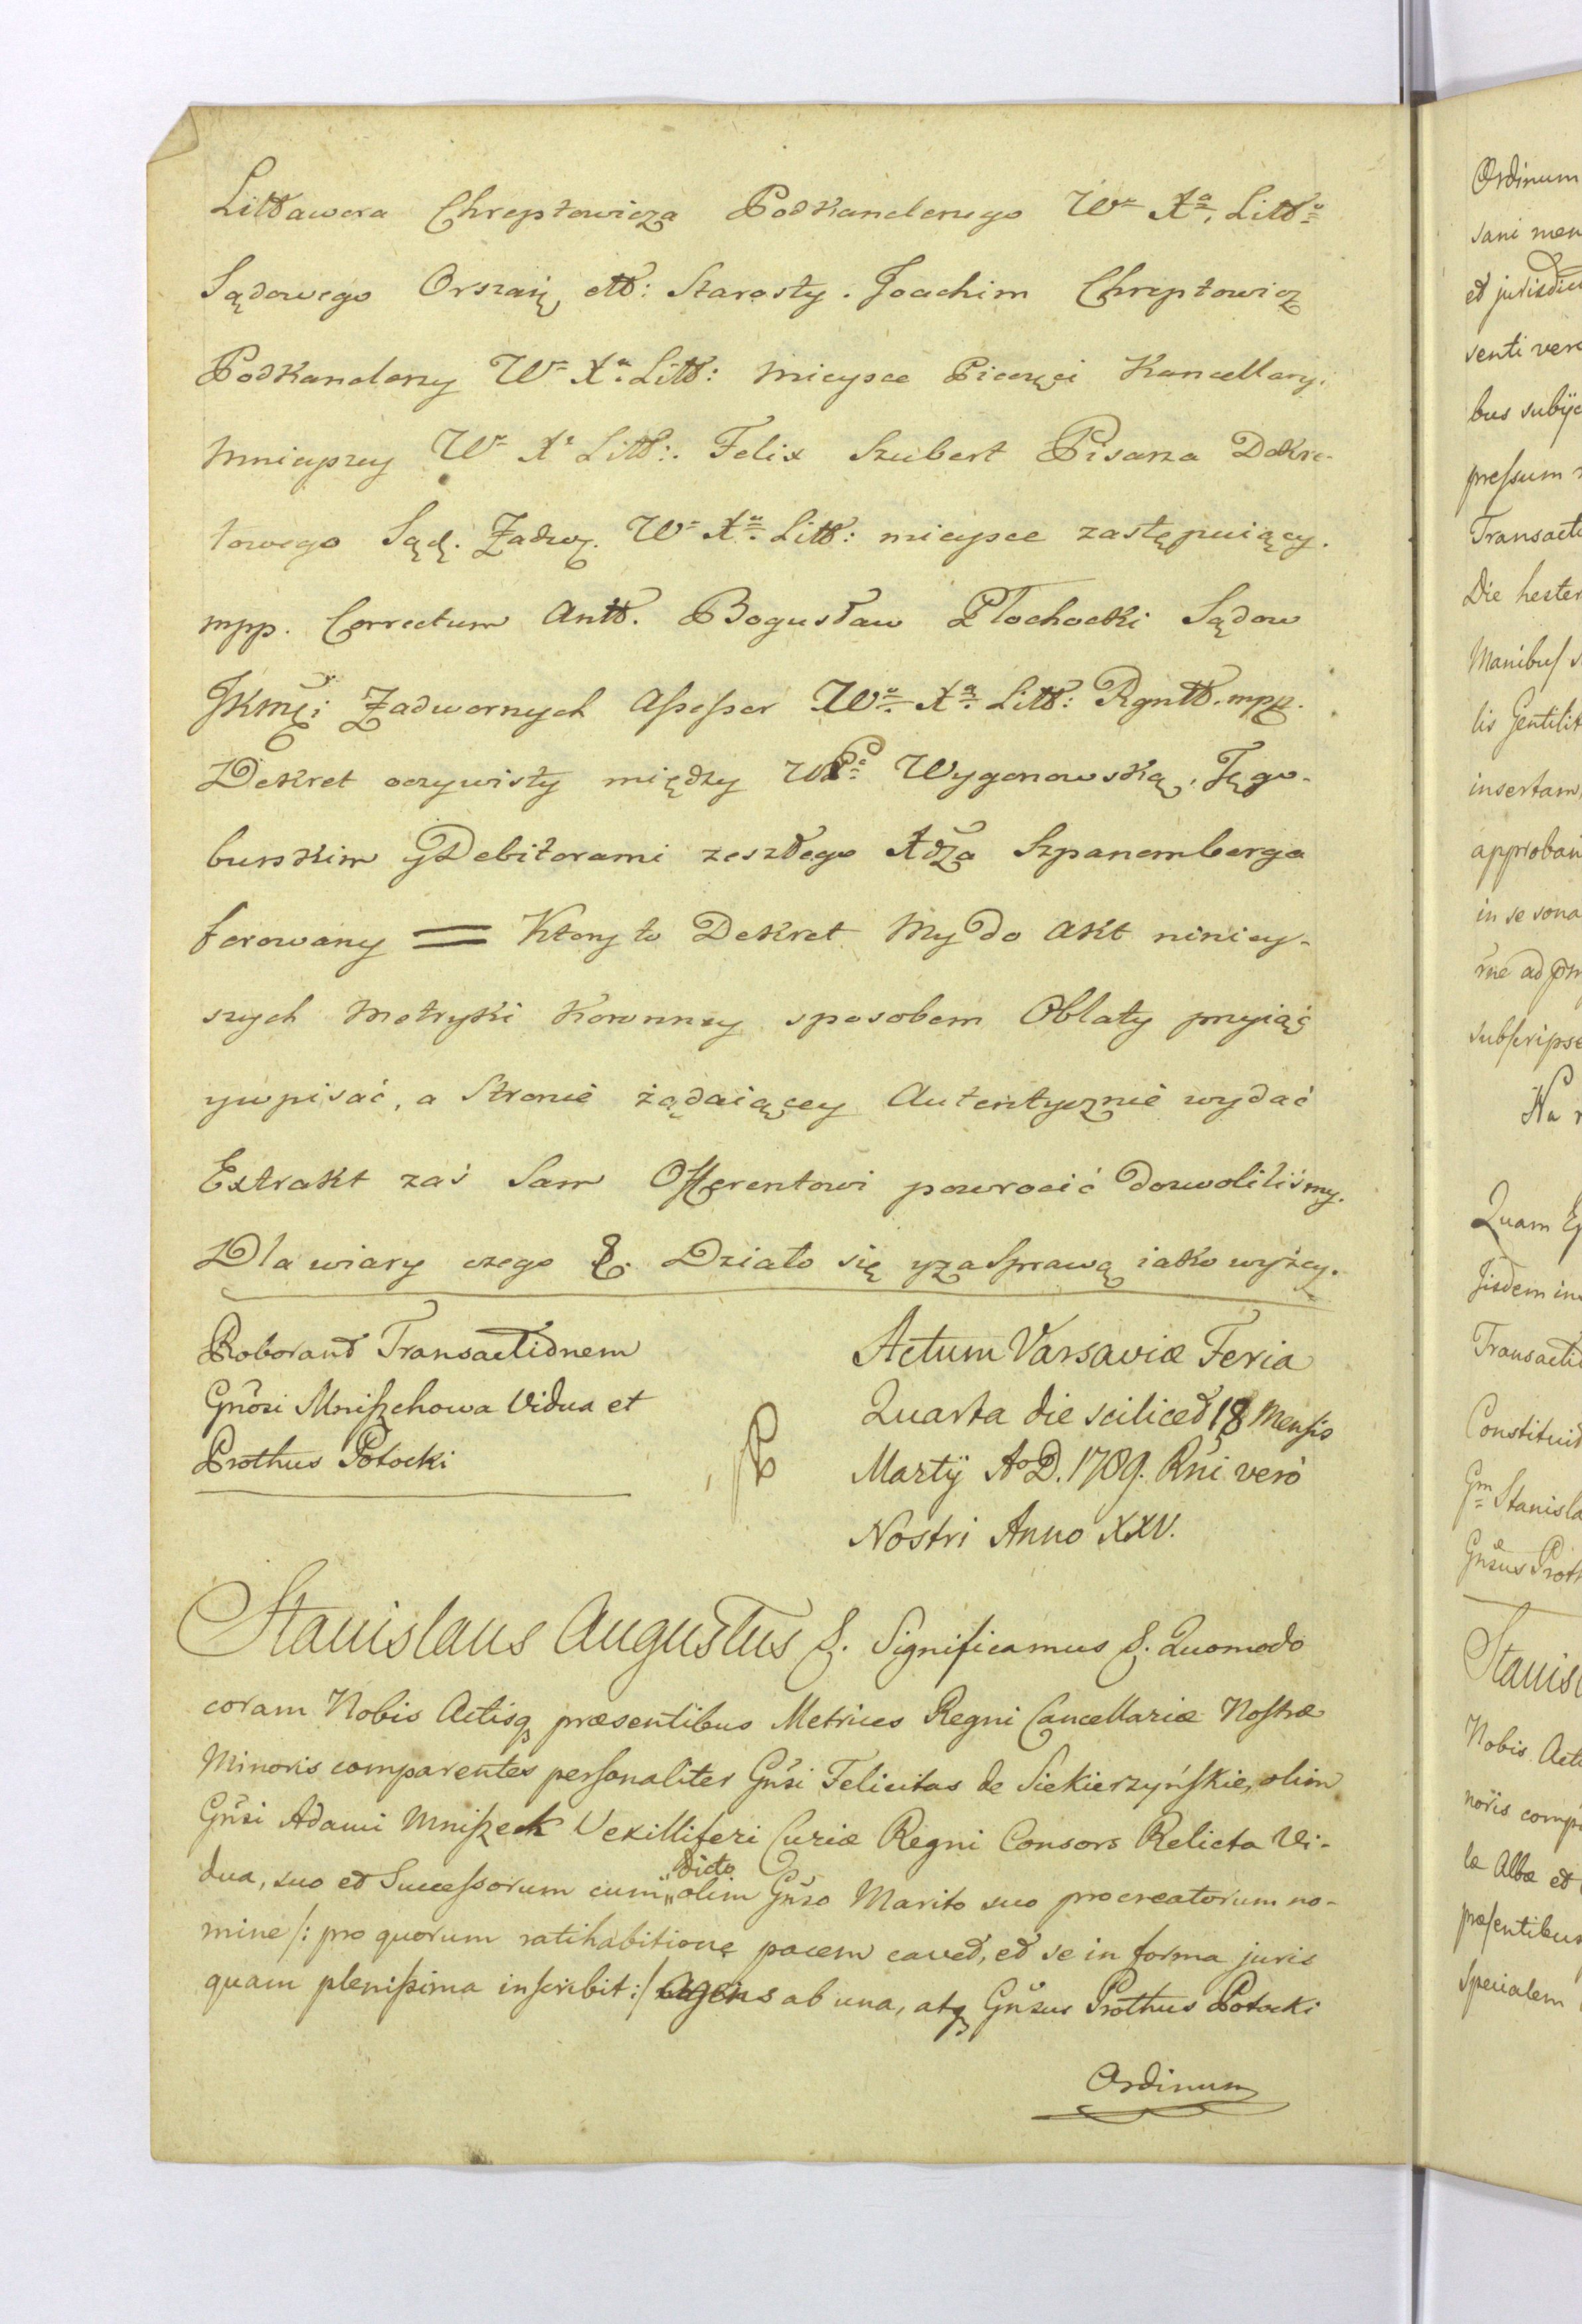 Littawora Chreptowicza Podkanclerzego Wo Xa. Litto
Sądowego Orszań: ett: Starosty. Joachim Chreptowicz
Podkanclerzy Wo Xa. Litt: Mieysce Pieczęci Kancellaryi
Mnieyszey Wo Xa Litt: Felix Szubert Pisarza Dekre-
towego Sąd. Zadwo. Wo Xa. Litt: mieysce zastępuiący.
mpp. Correctum Antt. Bogusław Płochocki Sądow
JKmći Zadwornych Assessor Wo Xa. Litt: Rgntt. mpp.
Dekret oczywisty między WPą Wygonowską, Tęgo-
burskim y Debitorami zeszłego Xdza Szpanemberga
ferowany = Ktory to Dekret My do Akt niniey-
szych Metryki Koronney sposobem Oblaty przyiąć
y wpisać, a Stronie żądaiącey Autentycznie wydać
Extrakt zaś Sam Offerentowi powrocić dozwoliliśmy.
Dla wiary czego &. Działo się y za Sprawą iako wyżey.
Roborant Transactionem
Gnosi Mniszchowa Vidua et
Prothus Potocki
Actum Varsaviæ Feria
Quarta die scilicet 18 Mensis
Martÿ Ao D. 1789. Rni vero
Nostri Anno XXV.
Stanislaus Augustus &. Significamus &. Quomodo
coram Nobis Actisq præsentibus Metrices Regni Cancellariæ Nostræ
Minoris comparentes personaliter Gnsi Felicitas de Siekierzyńskie, olim
Gnsi Adami Mniszech Vexilliferi Curiæ Regni Consors Relicta Vi-
dua, suo et Successorum cum dicto olim Gnso Marito suo procreatorum no-
mine /: pro quorum ratihabitione pacem cavet, et se in forma juris
quam plenissima inscribit :/ agens ab una, atq Gnsus Prothus Potocki
Ordinum
Ordinum
sani men
et jurisdic
senti vero
bus subÿc
pressum
Transact
Die hester
Manibus
lis Gentilit
insertam,
approban
in se sona
subscripse
Na
Quam
Transacti
Constitui
Gm Stanisla
Gnsus Proth
Stanis
Nobis Act
noris comp
la Albæ et
præsentibus
Specialem